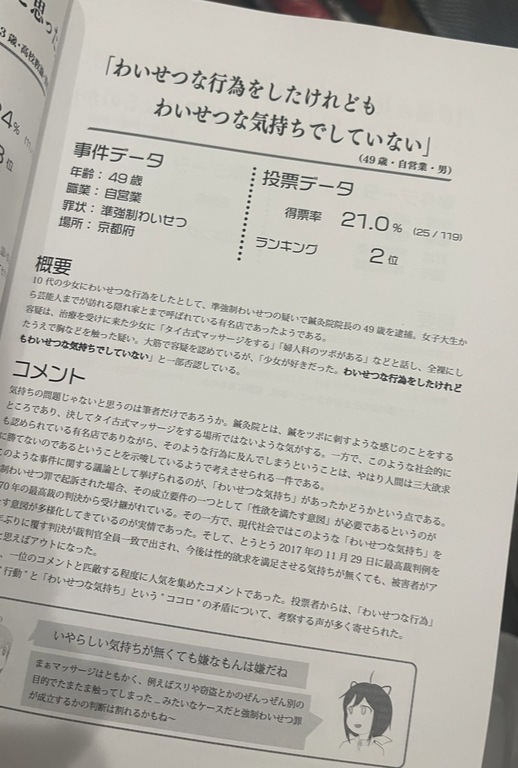 と思った
3歳・高校教諭
24%
3位
「わいせつな行為をしたけれども
わいせつな気持ちでしていない」
(49歳・自営業・男)
事件データ
年齢：49歳
職業：自営業
罪状：準強制わいせつ
場所：京都府
投票データ
得票率 21.0% (25/119)
ランキング 2位
概要
10代の少女にわいせつな行為をしたとして、準強制わいせつの疑いで鍼灸院院長の49歳を逮捕。女子大生か
ら芸能人までが訪れる隠れ家とまで呼ばれている有名店であったようである。
容疑は、治療を受けに来た少女に「タイ古式マッサージをする」「婦人科のツボがある」などと話し、全裸にし
たうえで胸などを触った疑い。大筋で容疑を認めているが、「少女が好きだった。わいせつな行為をしたけれど
もわいせつな気持ちでしていない」と一部否認している。
コメント
気持ちの問題じゃないと思うのは筆者だけであろうか。鍼灸院とは、鍼をツボに刺すような感じのことをする
ところであり、決してタイ古式マッサージをする場所ではないような気がする。一方で、このような社会的に
も認められている有名店でありながら、そのような行為に及んでしまうということは、やはり人間は三大欲求
に勝てないのであるということを示唆しているようで考えさせられる一件である。
このような事件に関する議論として挙げられるのが、「わいせつな気持ち」があったかどうかという点である。
制わいせつ罪で起訴された場合、その成立要件の一つとして「性欲を満たす意図」が必要であるというのが
70年の最高裁の判決から受け継がれている。その一方で、現代社会ではこのような「わいせつな気持ち」を
たす意図が多様化してきているのが実情であった。そして、とうとう2017年の11月29日に最高裁判例を
年ぶりに覆す判決が裁判官全員一致で出され、今後は性的欲求を満足させる気持ちが無くても、被害者がア
と思えばアウトになった。
、一位のコメントと匹敵する程度に人気を集めたコメントであった。投票者からは、「わいせつな行為」
"行動"と「わいせつな気持ち」という"ココロ"の矛盾について、考察する声が多く寄せられた。
いやらしい気持ちが無くても嫌なもんは嫌だね
まぁマッサージはともかく、例えばスリや窃盗とかのぜんぜん別の
目的でたまたま触ってしまった…みたいなケースだと強制わいせつ罪
が成立するかの判断は割れるかもね〜